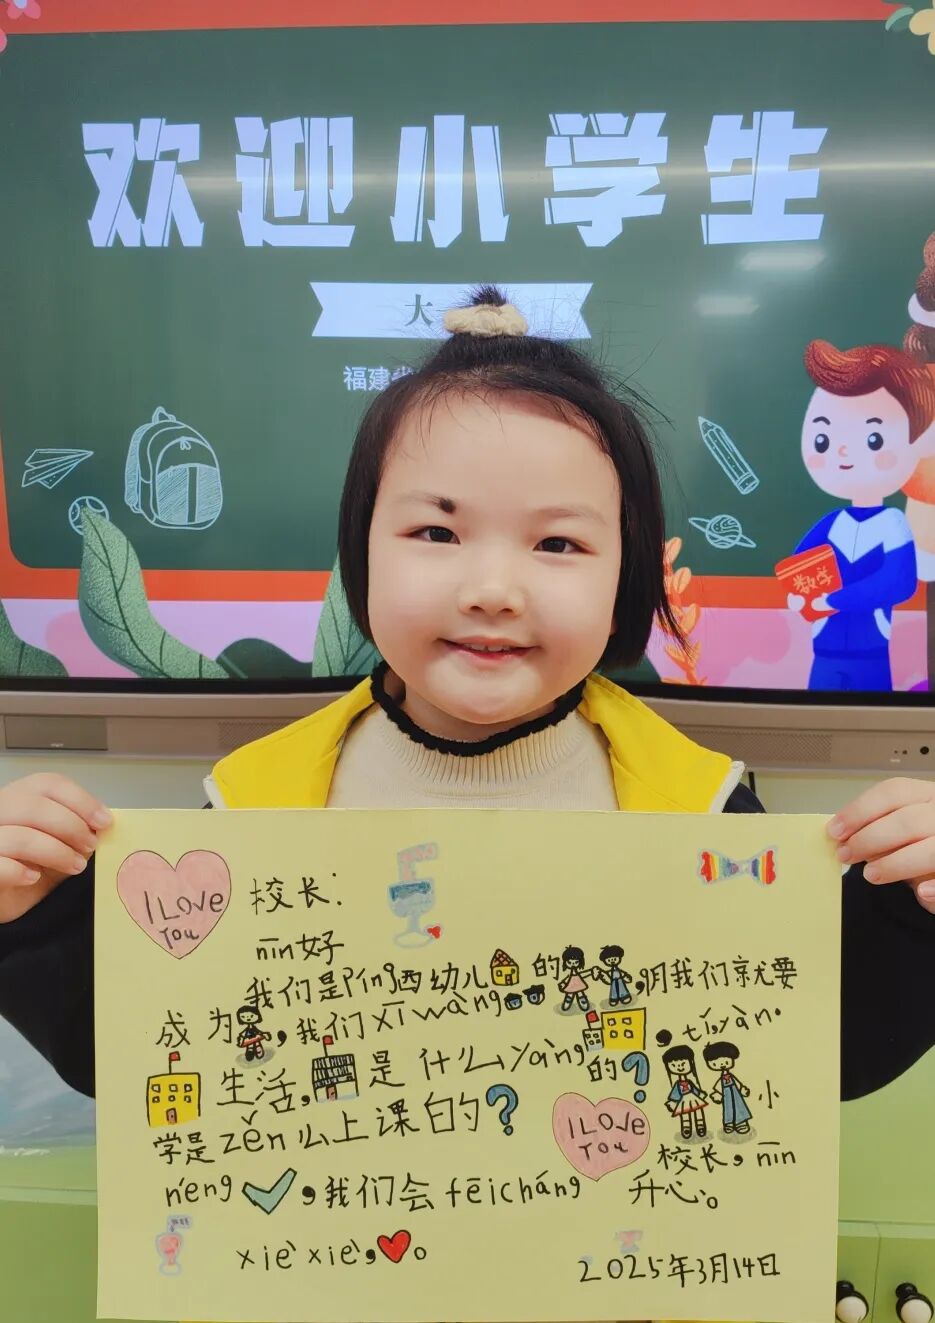 欢迎小学生
大
福建省
数学
I LOVE
YOU
校长:
nīn好
我们是Píng西幼儿的,明我们就要
成为,我们xīwàng,tǐyàn.
生活,是什么yàng的?
小
学是zěn么上课的?
I LOVE
YOU
校长,nīn
néng,我们会fēicháng开心。
xièxiè,。
2025年3月14日